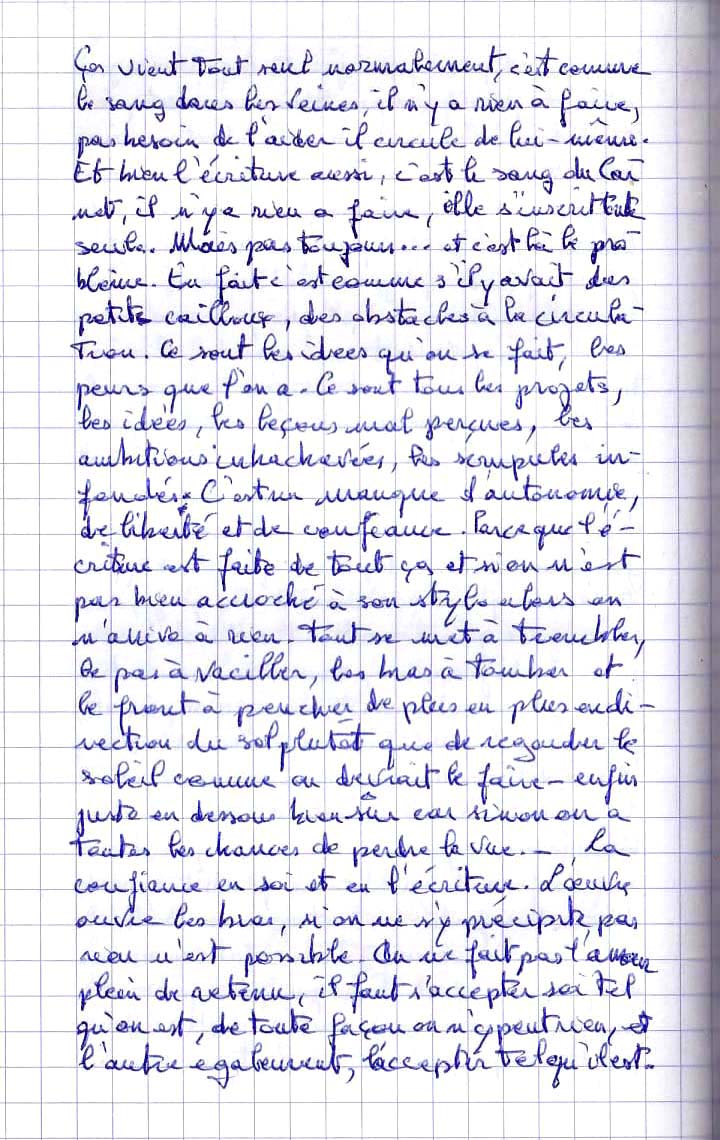 Ça vient tout seul normalement, c'est comme
le sang dans les veines, il n'y a rien à faire,
pas besoin de l'aider il circule de lui-même.
Et bien l'écriture aussi, c'est le sang du Car-
net, il n'y a rien a faire, elle s'inscrit toute
seule. Mais pas toujours... et c'est là le pro-
blème. En fait c'est comme s'il y avait des
petits cailloux, des obstacles à la circula-
tion. Ce sont les idées qu'on se fait, les
peurs que l'on a. Ce sont tous les projets,
les idées, les leçons mal perçues, les
ambitions inhachavées, les scrupules in-
fondés. C'est un manque d'autonomie,
de liberté et de confiance. Parce que l'é-
criture est faite de tout ça et si on n'est
pas bien accroché à son stylo alors on
n'arrive à rien. Tout se met à trembler,
le pas à vaciller, les bras à tomber et
le front à pencher de plus en plus en di-
rection du sol plutôt que de regarder le
soleil comme on devrait le faire - enfin
juste en dessous bien sûr car sinon on a
toutes les chances de perdre la vue. - La
confiance en soi et en l'écriture. L'œuvre
ouvre les bras, si on ne s'y précipite pas
rien n'est possible. On ne fait pas l'amour
plein de retenu, il faut s'accepter soi tel
qu'on est, de toute façon on n'y peut rien, et
l'autre egalement, l'accepter tel qu'il est.